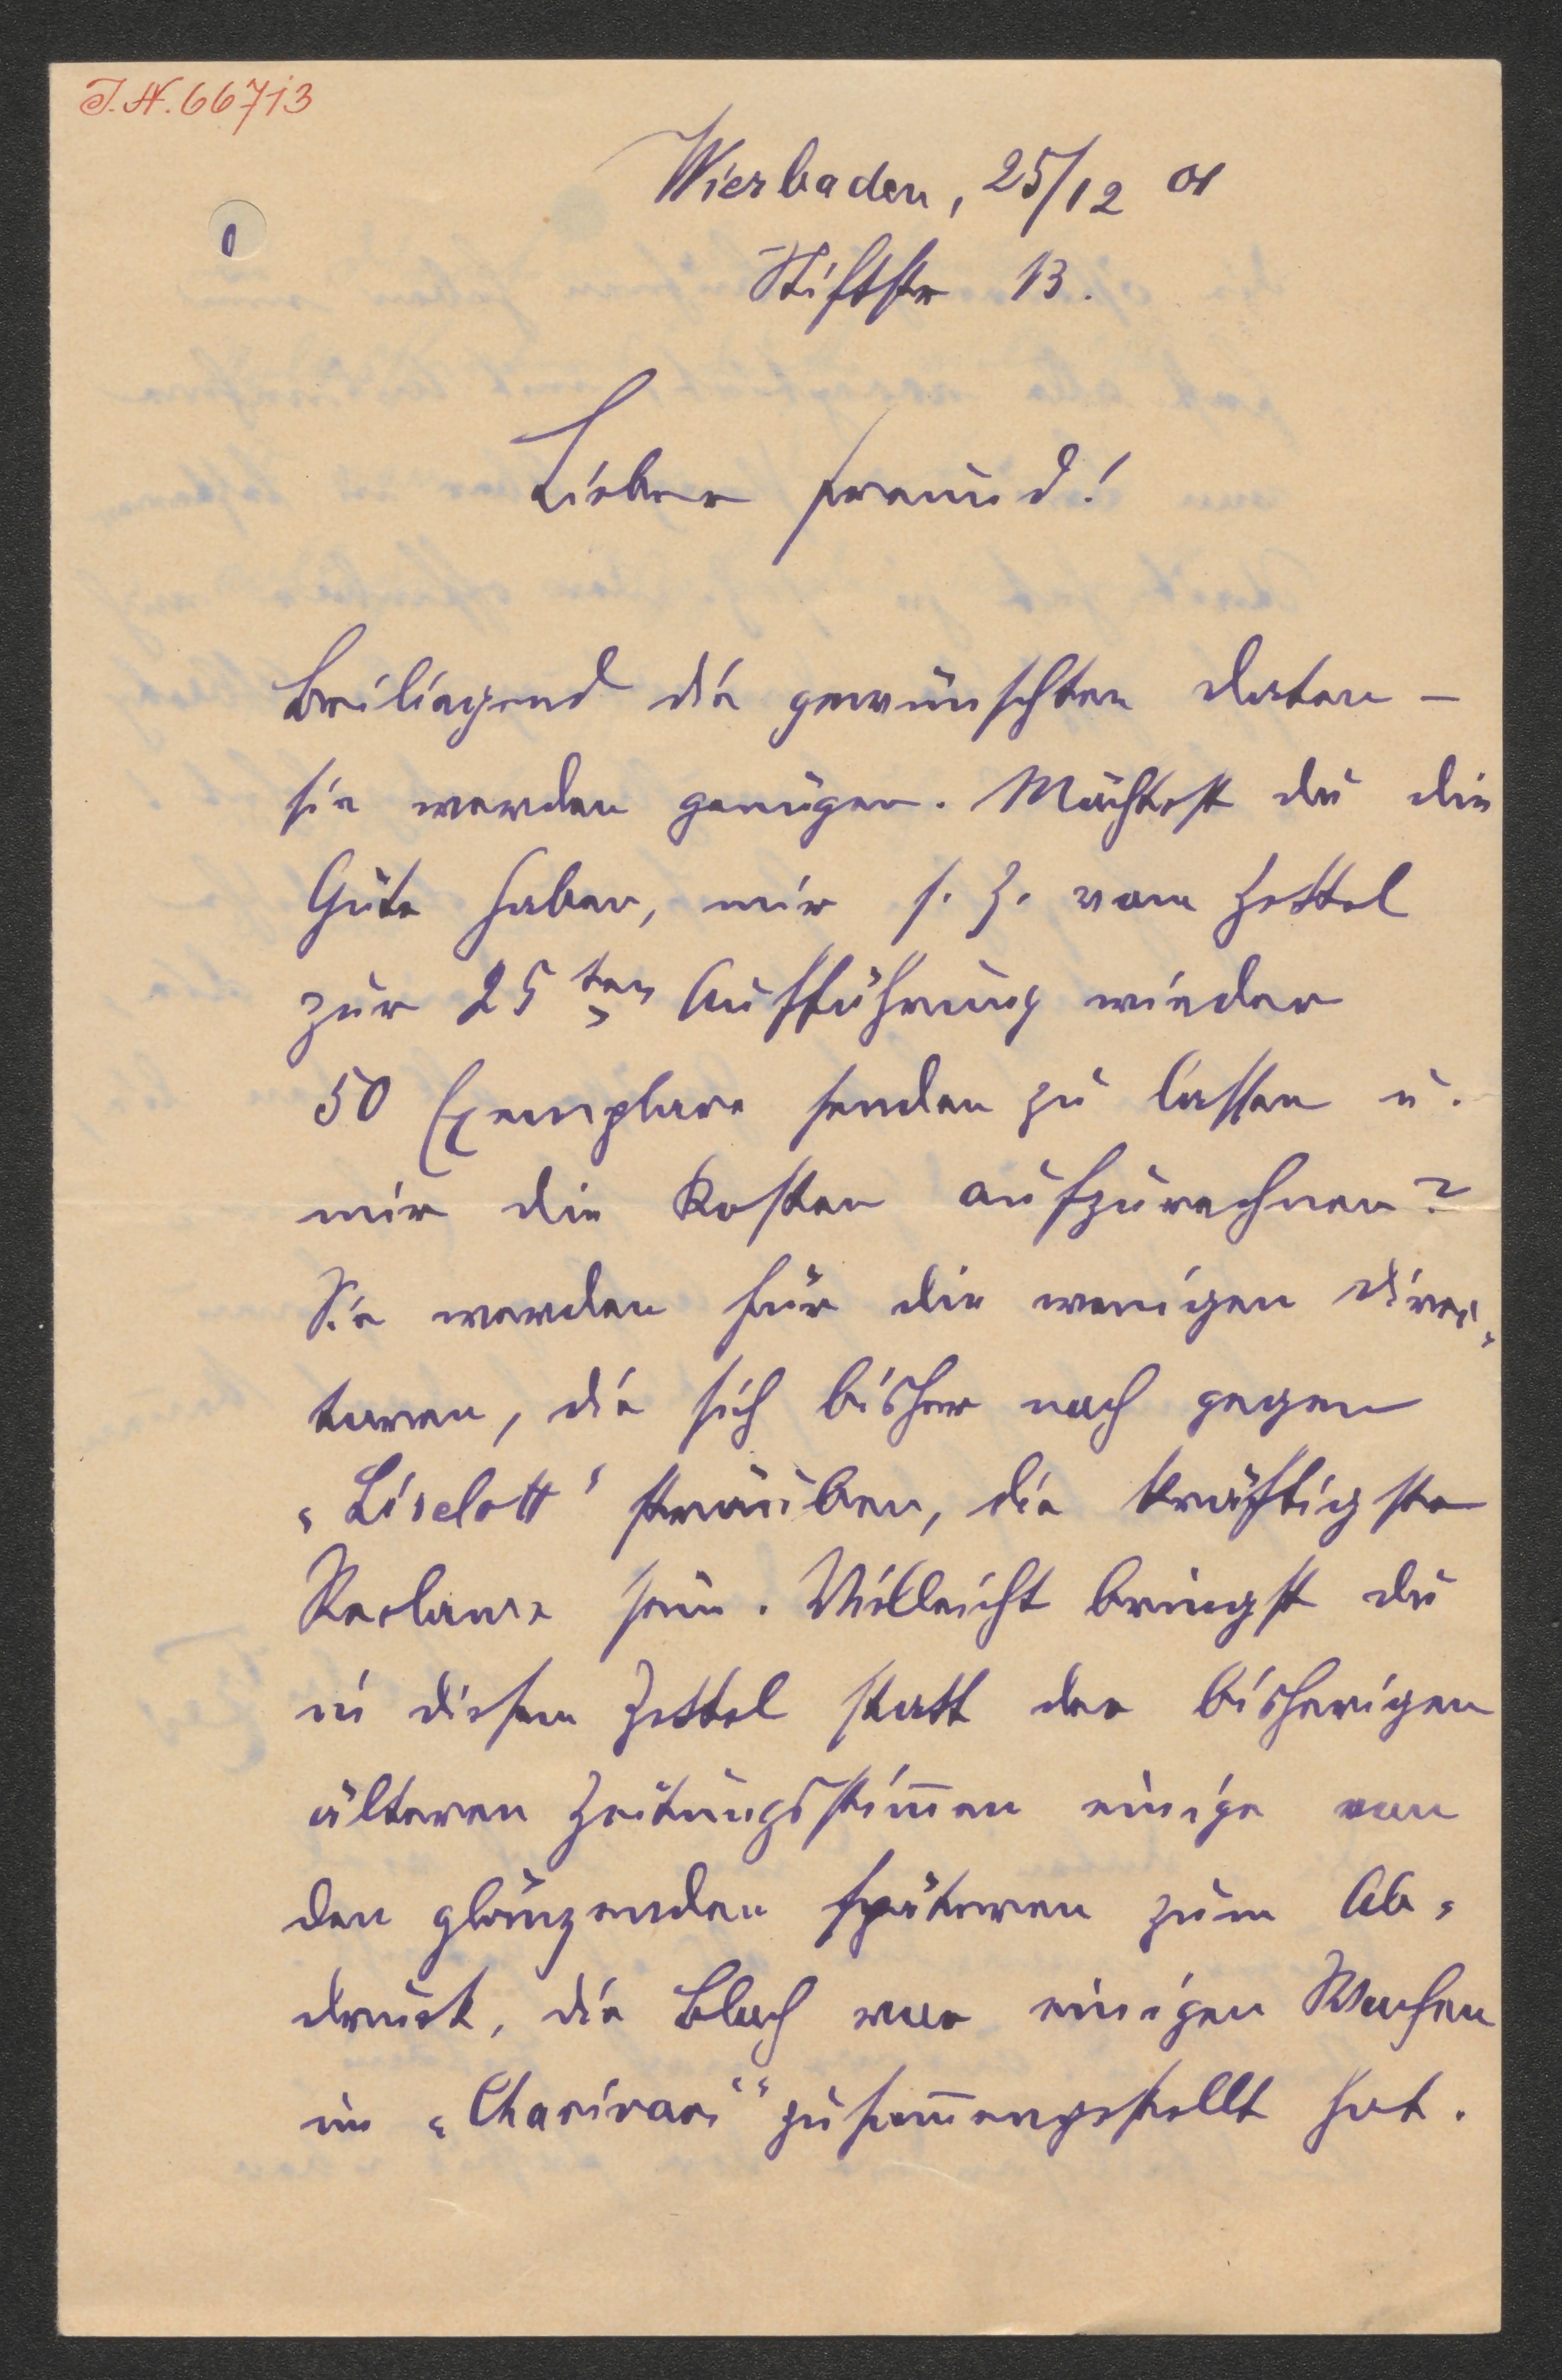 J.N. 66713
Wiesbaden, 25/12 01
Stiftstr 13.
Lieber Freund!
Beiliegend die gewünschten Daten –
sie werden genügen. Möchtest du die
Güte haben, mir s. Z. vom Zettel
zur 25ten Aufführung wieder
50 Exemplare senden zu lassen u.
mir die Kosten aufzurechnen?
Sie werden für die wenigen Direc-
toren, die sich bisher noch gegen
„Liselott“ sträuben, die kräftigste
Reclame sein. Vielleicht bringst du
in diesem Zettel statt der bisherigen
älteren Zeitungsstim̅en einige von
den glänzenden späteren zum Ab-
druck, die Bloch vor einigen Wochen
im „Charivari“ zusam̅engestellt hat.